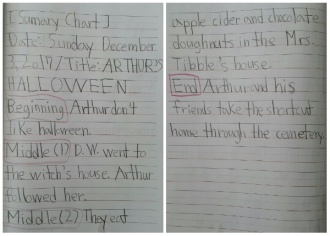 [Sumary Chart]
Date: Sunday December
3, 2017/Title: ARTHUR'S
HALLOWEEN
Beginning Arthur don't
like halloween.
Middle (1) D.W. went to
the witch's house. Arthur
followed her.
Middle (2) They eat
apple cider and chocolate
doughnuts in the Mrs.
Tibble's house.
End Arthur and his
friends take the shortcut
home through the cemetery.